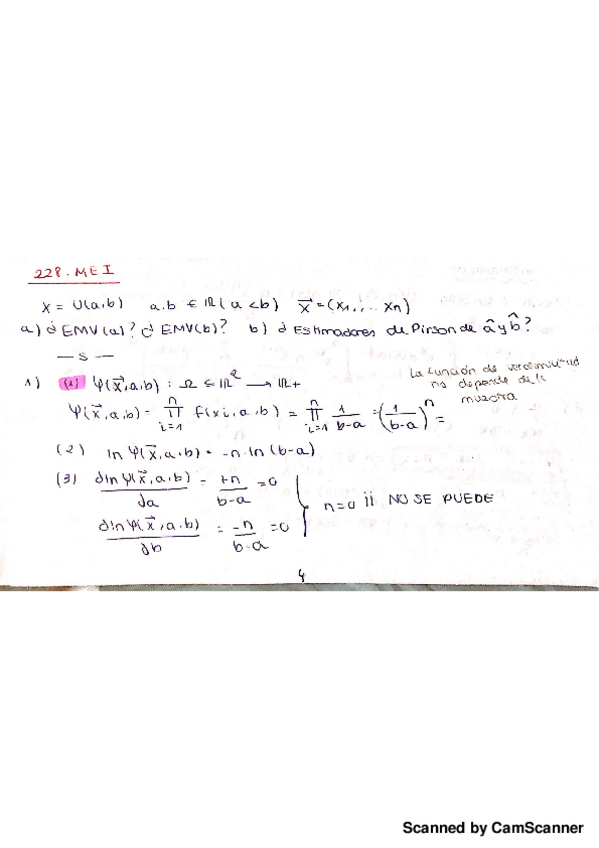 228. MEI
X = U(a,b) a.b ∈ IR (a < b) X⃗ = (X1, ... Xn)
a) ¿EMV(a)? ¿EMV(b)? b) ¿Estimadores de Pirson de â y b̂?
— s —
1) (1) Ψ(X⃗,a,b) : Ω ⊆ IR² → IR+
La función de verosimilitud
no depende de la
muestra
Ψ(X⃗,a,b) = ∏ᵢ₌₁ⁿ f(xi,a,b) = ∏ᵢ₌₁ⁿ 1/(b-a) = (1/(b-a))ⁿ =
(2) ln Ψ(X⃗,a,b) = -n·ln(b-a)
(3) ∂ln Ψ(X⃗,a,b)/∂a = +n/(b-a) = 0
n=0 ¡¡ NO SE PUEDE
∂ln Ψ(X⃗,a,b)/∂b = -n/(b-a) = 0
4
Scanned by CamScanner